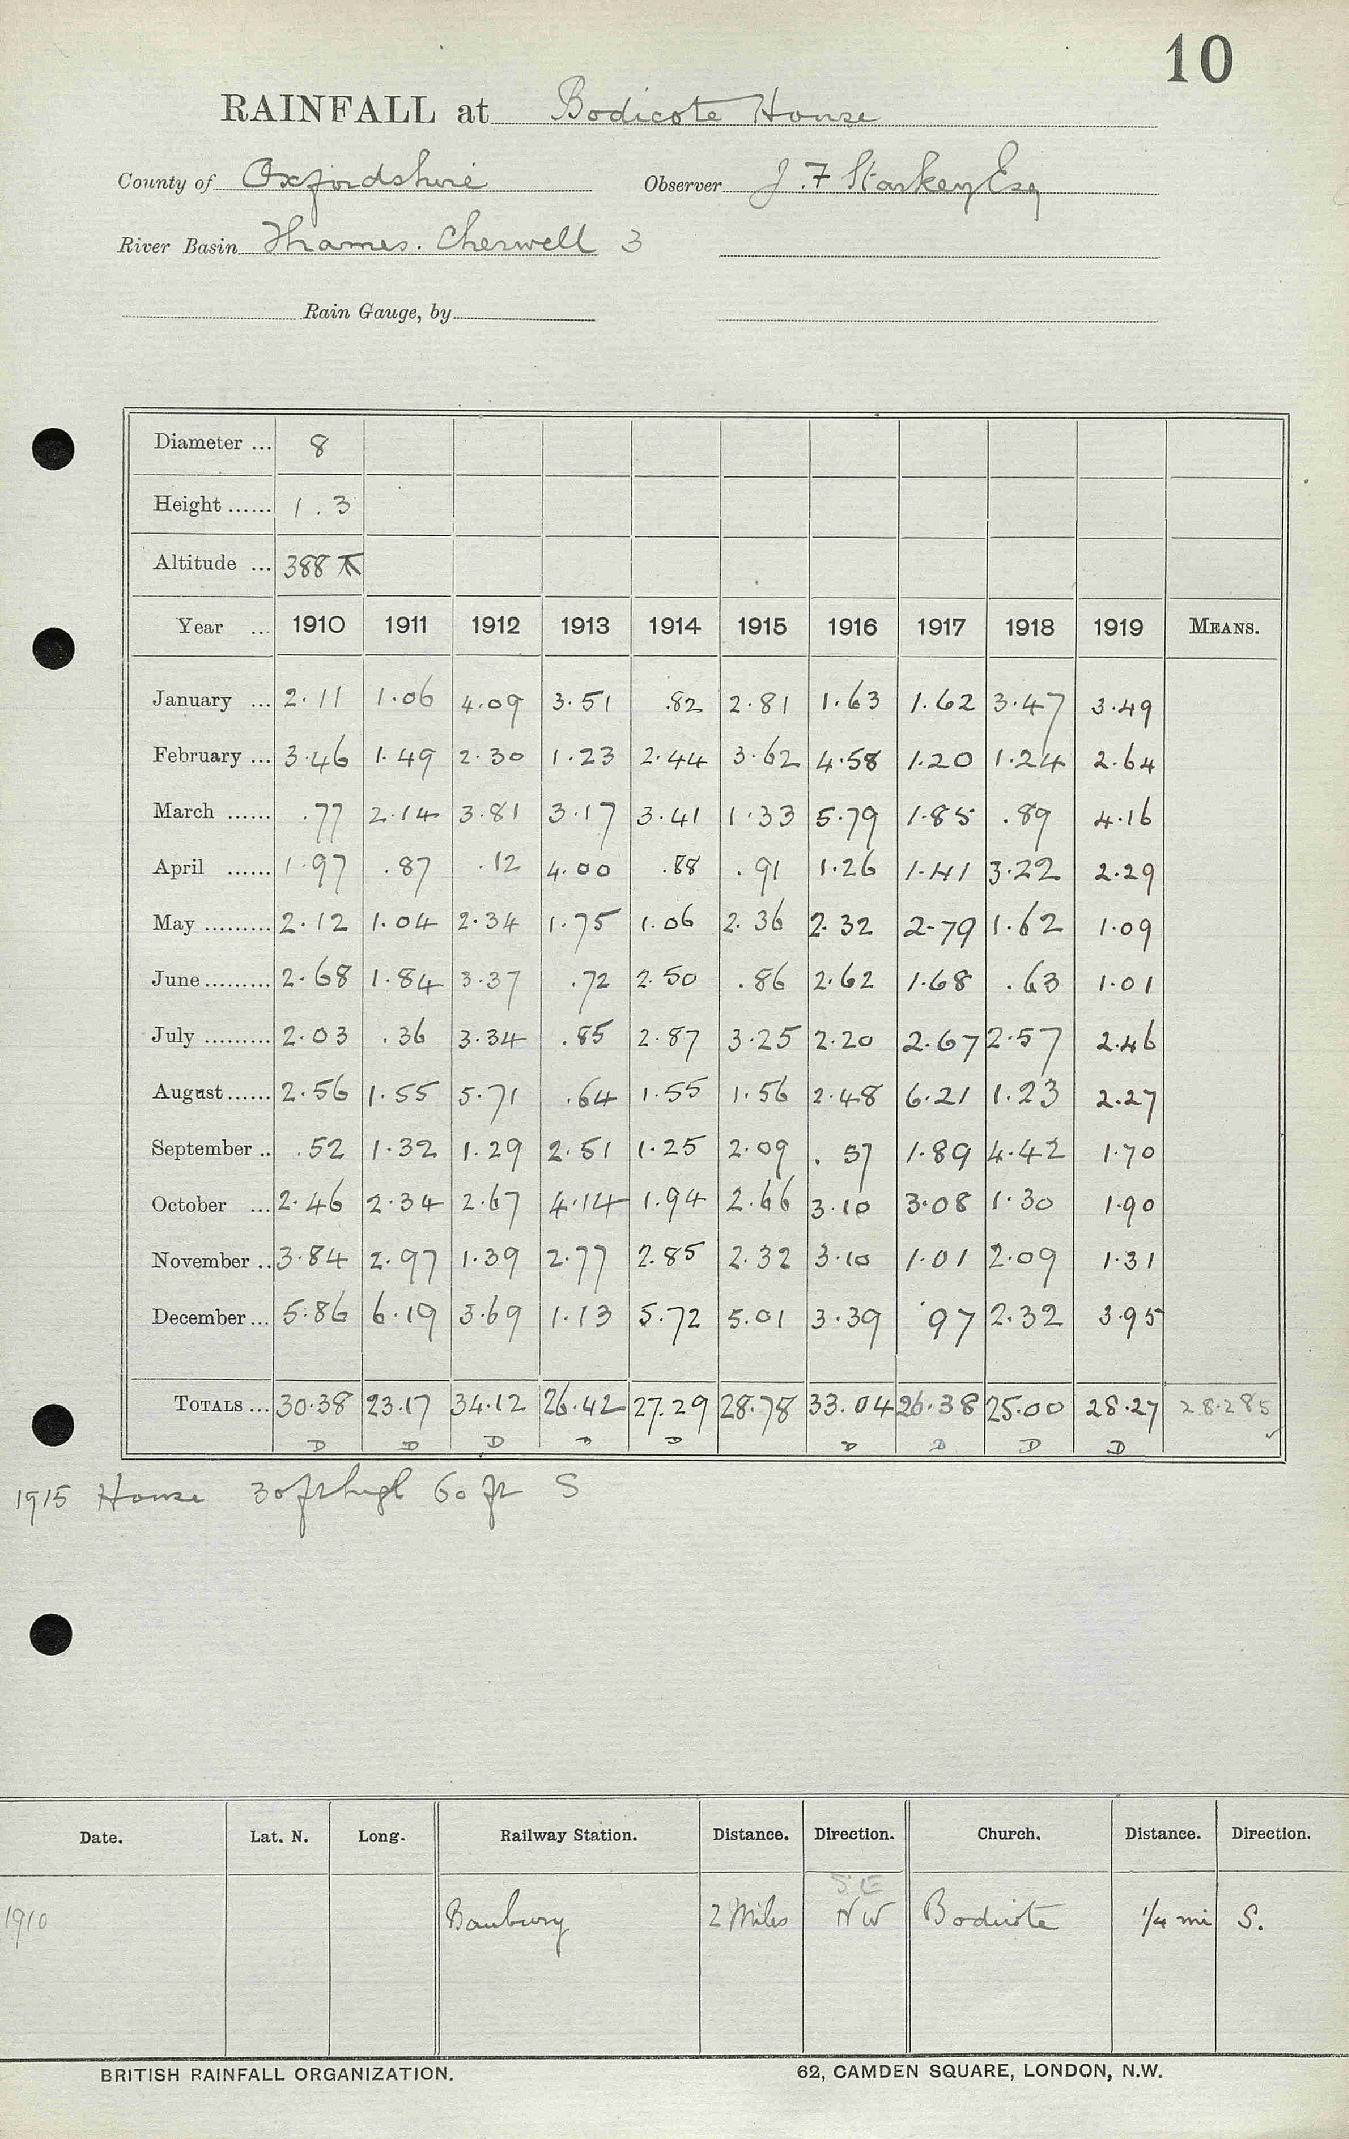 10
RAINFALL at Bodicote House
County of Oxfordshire Observer J. F Starkey Esq
River Basin Thames. Cherwell 3
Rain Gauge, by
Diameter ... 8
Height ...... 1 . 3
Altitude ... 388
Year ... 1910 1911 1912 1913 1914 1915 1916 1917 1918 1919 MEANS.
January ... 2.11 1.06 4.09 3.51 .82 2.81 1.63 1.62 3.47 3.49
February ... 3.46 1.49 2.30 1.23 2.44 3.62 4.58 1.20 1.24 2.64
March ...... .77 2.14 3.81 3.17 3.41 1.33 5.79 1.85 .89 4.16
April ...... 1.97 .87 .12 4.00 .88 .91 1.26 1.41 3.22 2.29
May ......... 2.12 1.04 2.34 1.75 1.06 2.36 2.32 2.79 1.62 1.09
June ......... 2.68 1.84 3.37 .72 2.50 .86 2.62 1.68 .63 1.01
July ......... 2.03 .36 3.34 .85 2.87 3.25 2.20 2.67 2.57 2.46
August ...... 2.56 1.55 5.71 .64 1.55 1.56 2.48 6.21 1.23 2.27
September .. .52 1.32 1.29 2.51 1.25 2.09 .57 1.89 4.42 1.70
October ... 2.46 2.34 2.67 4.14 1.94 2.66 3.10 3.08 1.30 1.90
November .. 3.84 2.97 1.39 2.77 2.85 2.32 3.10 1.01 2.09 1.31
December ... 5.86 6.19 3.69 1.13 5.72 5.01 3.39 .97 2.32 3.95
TOTALS ... 30.38 23.17 34.12 26.42 27.29 28.78 33.04 26.38 25.00 28.27 28.285
D D D D D D D D D
1915 House 30ft high 60 ft S
Date. Lat. N. Long. Railway Station. Distance. Direction. Church. Distance. Direction.
S.E
1910 Banbury 2 Miles NW Bodicote 1/4 mi S.
BRITISH RAINFALL ORGANIZATION. 62, CAMDEN SQUARE, LONDON, N.W.